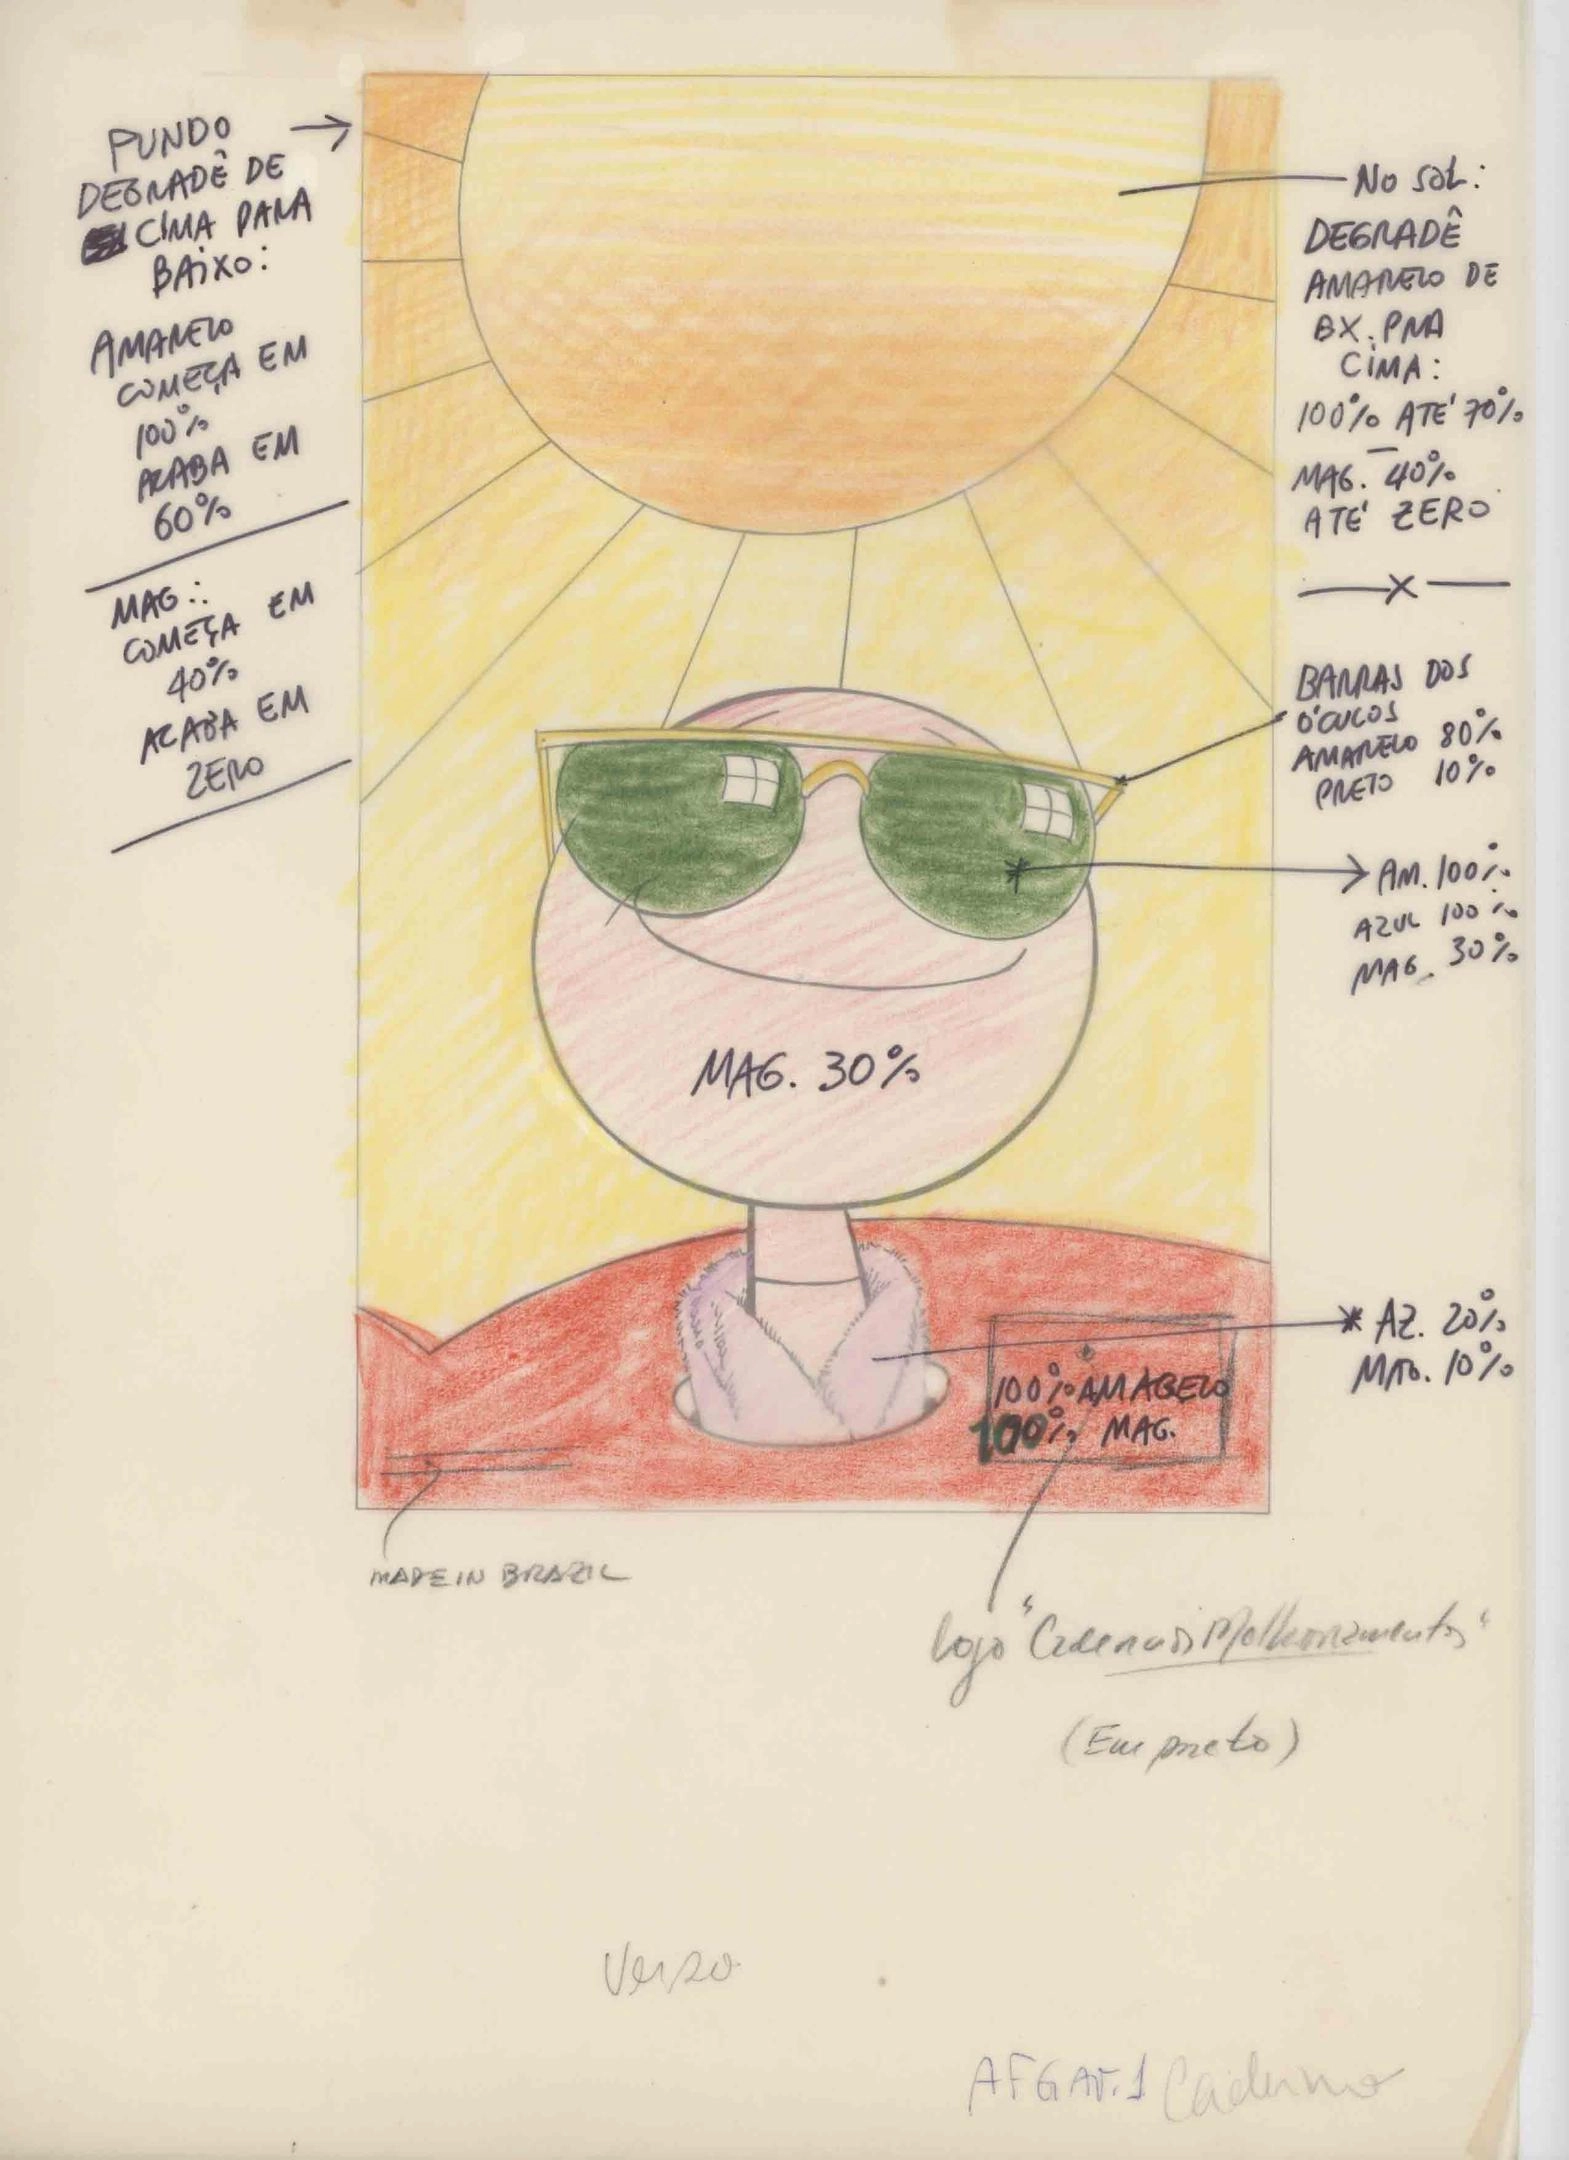 FUNDO
DEGRADÊ DE
CIMA PARA
BAIXO:
AMARELO
COMEÇA EM
100%
ACABA EM
60%
MAG.:
COMEÇA EM
40%
ACABA EM
ZERO
NO SOL:
DEGRADÊ
AMARELO DE
BX. PRA
CIMA:
100% ATÉ 70%
MAG. 40%
ATÉ ZERO
X
BARRAS DOS
ÓCULOS
AMARELO 80%
PRETO 10%
AM. 100%
AZUL 100%
MAG. 30%
MAG. 30%
AZ. 20%
MAG. 10%
100% AMARELO
100% MAG.
MADE IN BRAZIL
logo "Cadernos Melhoramentos"
(Em preto)
Verso
AFGAV.1 Caderno